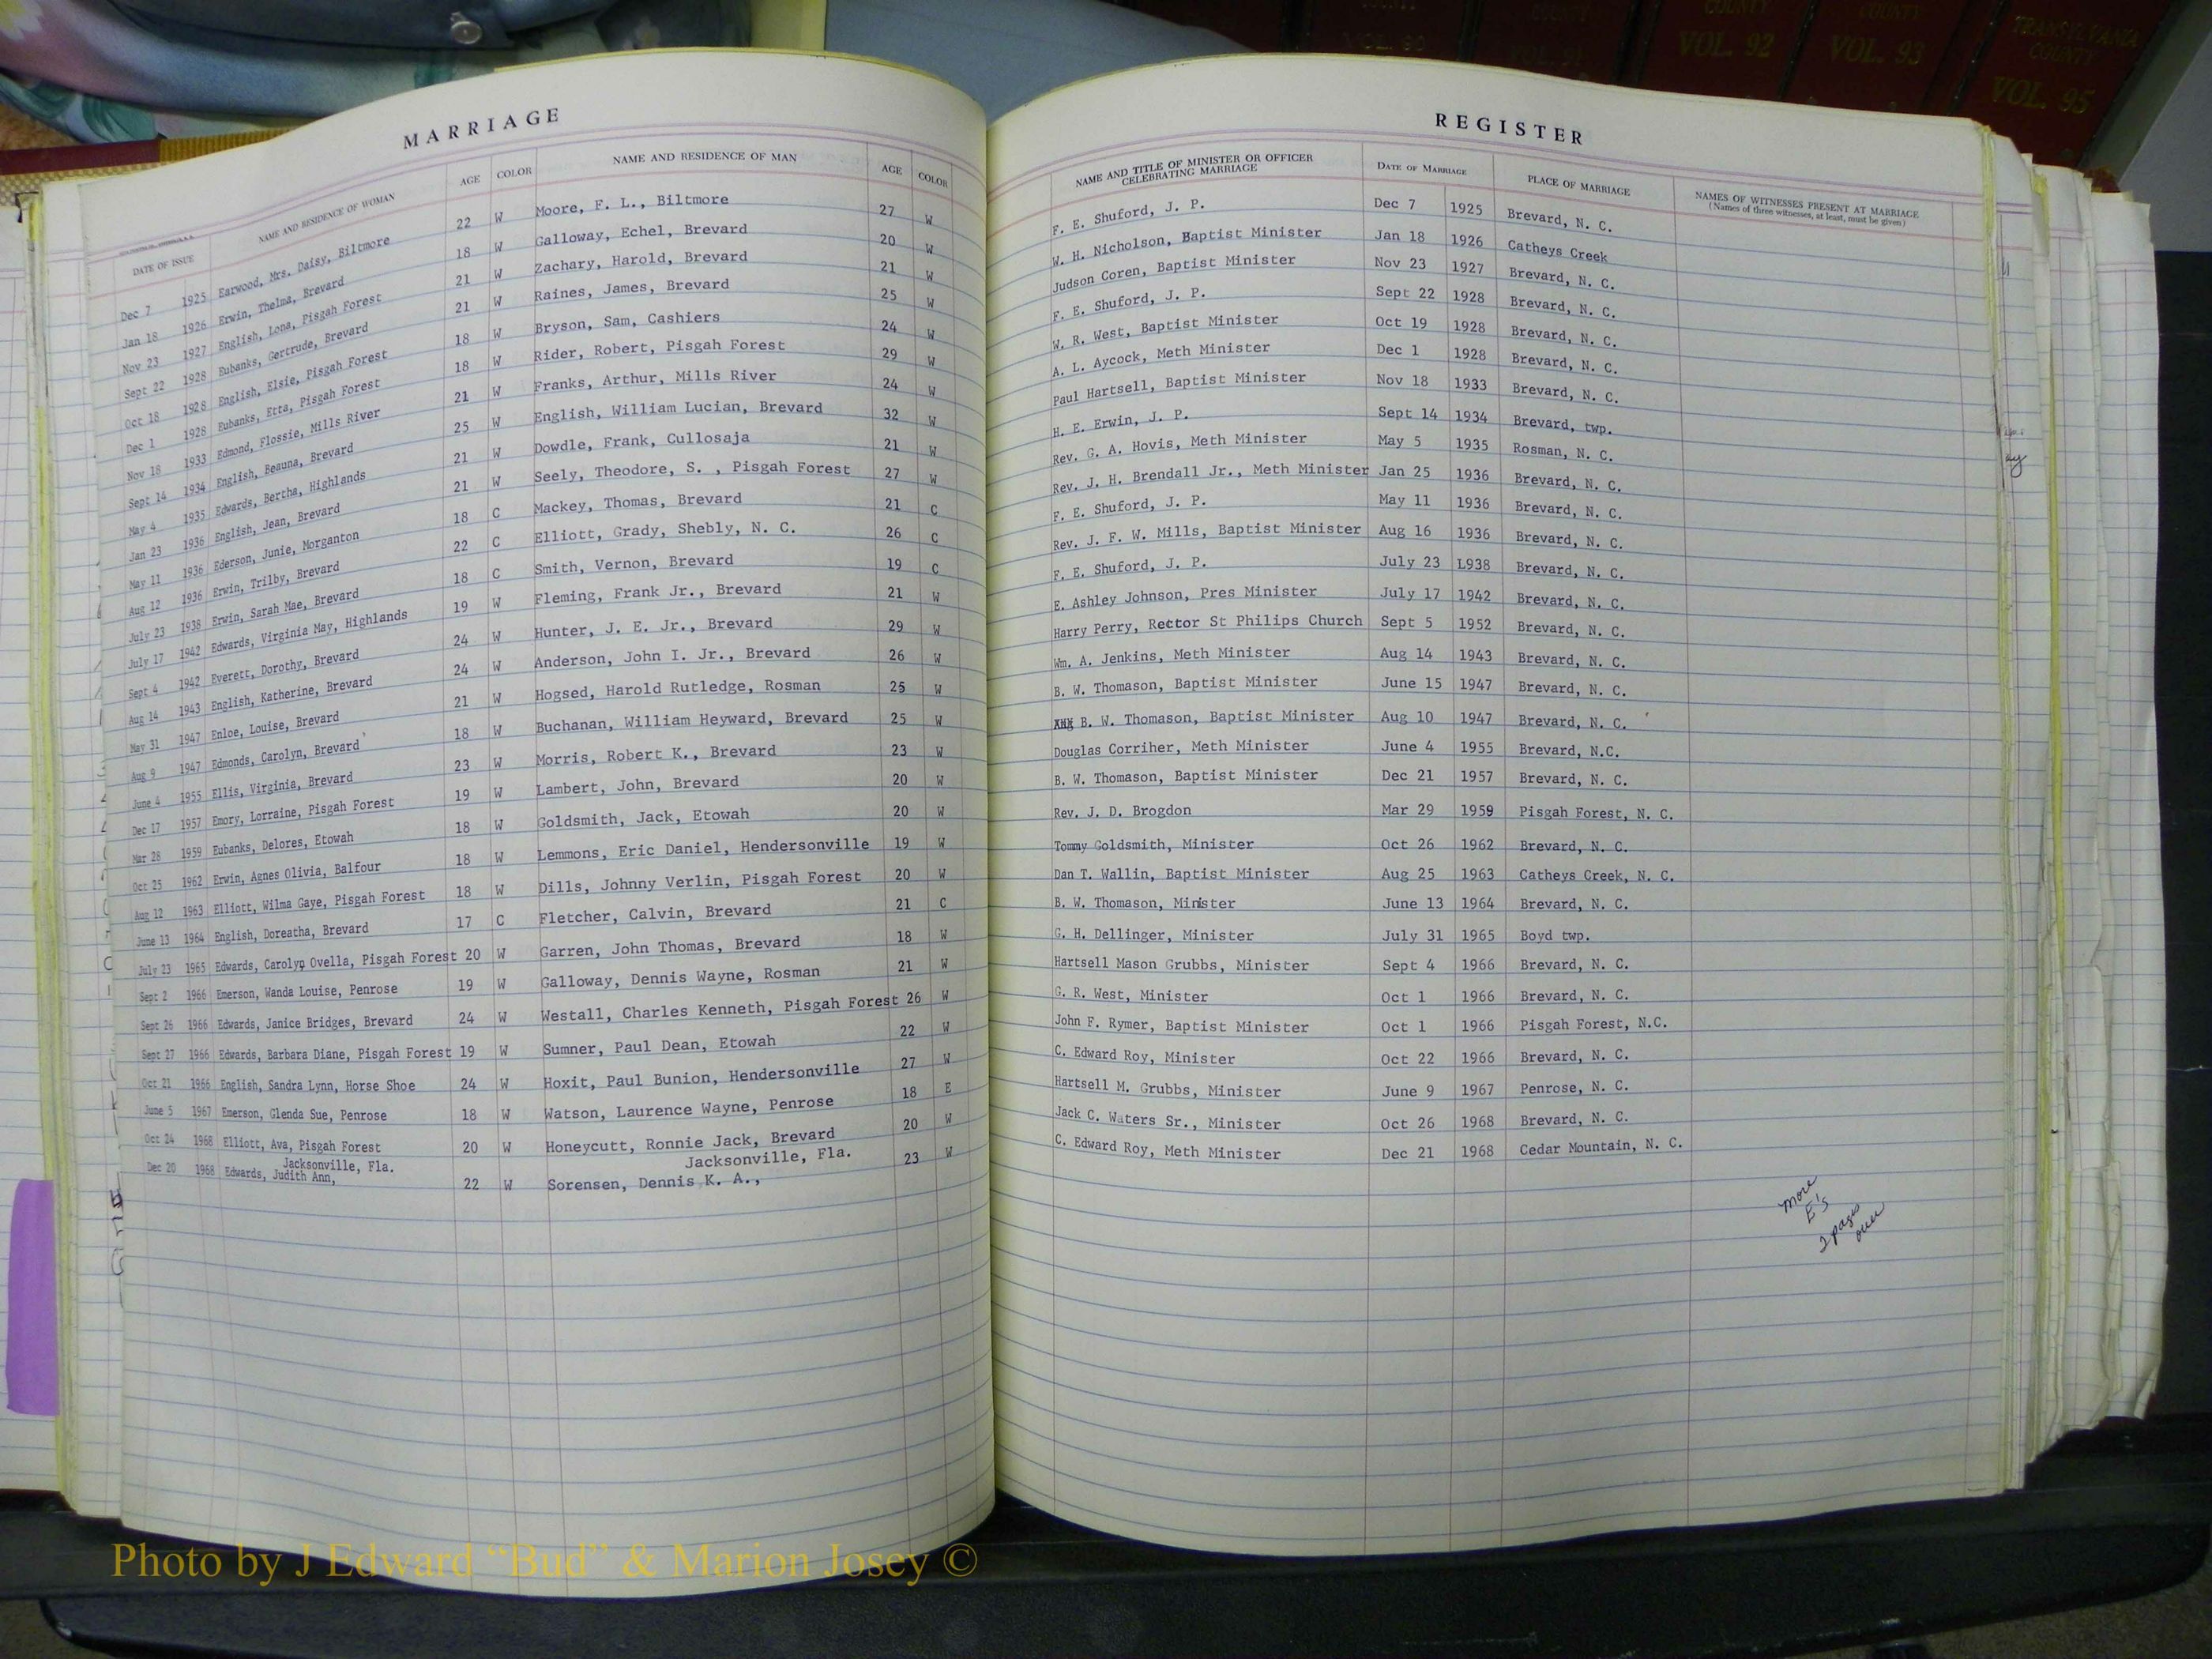 COUNTY
VOL. 90
COUNTY
VOL. 91
COUNTY
VOL. 92
COUNTY
VOL. 93
TRANSYLVANIA
COUNTY
VOL. 95
MARRIAGE
DATE OF ISSUE NAME AND RESIDENCE OF WOMAN AGE COLOR NAME AND RESIDENCE OF MAN AGE COLOR
Dec 7 1925 Earwood, Mrs. Daisy, Biltmore 22 W Moore, F. L., Biltmore 27 W
Jan 18 1926 Erwin, Thelma, Brevard 18 W Galloway, Echel, Brevard 20 W
Nov 23 1927 English, Lona, Pisgah Forest 21 W Zachary, Harold, Brevard 21 W
Sept 22 1928 Eubanks, Gertrude, Brevard 21 W Raines, James, Brevard 25 W
Oct 18 1928 English, Elsie, Pisgah Forest 18 W Bryson, Sam, Cashiers 24 W
Dec 1 1928 Eubanks, Etta, Pisgah Forest 18 W Rider, Robert, Pisgah Forest 29 W
Nov 18 1933 Edmond, Flossie, Mills River 21 W Franks, Arthur, Mills River 24 W
Sept 14 1934 English, Beauna, Brevard 25 W English, William Lucian, Brevard 32 W
May 4 1935 Edwards, Bertha, Highlands 21 W Dowdle, Frank, Cullosaja 21 W
Jan 23 1936 English, Jean, Brevard 21 W Seely, Theodore, S. , Pisgah Forest 27 W
May 11 1936 Ederson, Junie, Morganton 18 C Mackey, Thomas, Brevard 21 C
Aug 12 1936 Erwin, Trilby, Brevard 22 C Elliott, Grady, Shebly, N. C. 26 C
July 23 1938 Erwin, Sarah Mae, Brevard 18 C Smith, Vernon, Brevard 19 C
July 17 1942 Edwards, Virginia May, Highlands 19 W Fleming, Frank Jr., Brevard 21 W
Sept 4 1942 Everett, Dorothy, Brevard 24 W Hunter, J. E. Jr., Brevard 29 W
Aug 14 1943 English, Katherine, Brevard 24 W Anderson, John I. Jr., Brevard 26 W
May 31 1947 Enloe, Louise, Brevard 21 W Hogsed, Harold Rutledge, Rosman 25 W
Aug 9 1947 Edmonds, Carolyn, Brevard 18 W Buchanan, William Heyward, Brevard 25 W
June 4 1955 Ellis, Virginia, Brevard 23 W Morris, Robert K., Brevard 23 W
Dec 17 1957 Emory, Lorraine, Pisgah Forest 19 W Lambert, John, Brevard 20 W
Mar 28 1959 Eubanks, Delores, Etowah 18 W Goldsmith, Jack, Etowah 20 W
Oct 25 1962 Erwin, Agnes Olivia, Balfour 18 W Lemmons, Eric Daniel, Hendersonville 19 W
Aug 12 1963 Elliott, Wilma Gaye, Pisgah Forest 18 W Dills, Johnny Verlin, Pisgah Forest 20 W
June 13 1964 English, Doreatha, Brevard 17 C Fletcher, Calvin, Brevard 21 C
July 23 1965 Edwards, Carolyn Ovella, Pisgah Forest 20 W Garren, John Thomas, Brevard 18 W
Sept 2 1966 Emerson, Wanda Louise, Penrose 19 W Galloway, Dennis Wayne, Rosman 21 W
Sept 26 1966 Edwards, Janice Bridges, Brevard 24 W Westall, Charles Kenneth, Pisgah Forest 26 W
Sept 27 1966 Edwards, Barbara Diane, Pisgah Forest 19 W Sumner, Paul Dean, Etowah 22 W
Oct 21 1966 English, Sandra Lynn, Horse Shoe 24 W Hoxit, Paul Bunion, Hendersonville 27 W
June 5 1967 Emerson, Glenda Sue, Penrose 18 W Watson, Laurence Wayne, Penrose 18 E
Oct 24 1968 Elliott, Ava, Pisgah Forest 20 W Honeycutt, Ronnie Jack, Brevard 20 W
Jacksonville, Fla. Jacksonville, Fla.
Dec 20 1968 Edwards, Judith Ann, 22 W Sorensen, Dennis K. A., 23 W
REGISTER
NAME AND TITLE OF MINISTER OR OFFICER CELEBRATING MARRIAGE DATE OF MARRIAGE PLACE OF MARRIAGE NAMES OF WITNESSES PRESENT AT MARRIAGE
(Names of three witnesses, at least, must be given)
F. E. Shuford, J. P. Dec 7 1925 Brevard, N. C.
W. H. Nicholson, Baptist Minister Jan 18 1926 Catheys Creek
Judson Coren, Baptist Minister Nov 23 1927 Brevard, N. C.
F. E. Shuford, J. P. Sept 22 1928 Brevard, N. C.
W. R. West, Baptist Minister Oct 19 1928 Brevard, N. C.
A. L. Aycock, Meth Minister Dec 1 1928 Brevard, N. C.
Paul Hartsell, Baptist Minister Nov 18 1933 Brevard, N. C.
H. E. Erwin, J. P. Sept 14 1934 Brevard, twp.
Rev. G. A. Hovis, Meth Minister May 5 1935 Rosman, N. C.
Rev. J. H. Brendall Jr., Meth Minister Jan 25 1936 Brevard, N. C.
F. E. Shuford, J. P. May 11 1936 Brevard, N. C.
Rev. J. F. W. Mills, Baptist Minister Aug 16 1936 Brevard, N. C.
F. E. Shuford, J. P. July 23 L938 Brevard, N. C.
E. Ashley Johnson, Pres Minister July 17 1942 Brevard, N. C.
Harry Perry, Rector St Philips Church Sept 5 1952 Brevard, N. C.
Wm. A. Jenkins, Meth Minister Aug 14 1943 Brevard, N. C.
B. W. Thomason, Baptist Minister June 15 1947 Brevard, N. C.
B. W. Thomason, Baptist Minister Aug 10 1947 Brevard, N. C.
Douglas Corriher, Meth Minister June 4 1955 Brevard, N.C.
B. W. Thomason, Baptist Minister Dec 21 1957 Brevard, N. C.
Rev. J. D. Brogdon Mar 29 1959 Pisgah Forest, N. C.
Tommy Goldsmith, Minister Oct 26 1962 Brevard, N. C.
Dan T. Wallin, Baptist Minister Aug 25 1963 Catheys Creek, N. C.
B. W. Thomason, Minister June 13 1964 Brevard, N. C.
G. H. Dellinger, Minister July 31 1965 Boyd twp.
Hartsell Mason Grubbs, Minister Sept 4 1966 Brevard, N. C.
G. R. West, Minister Oct 1 1966 Brevard, N. C.
John F. Rymer, Baptist Minister Oct 1 1966 Pisgah Forest, N.C.
C. Edward Roy, Minister Oct 22 1966 Brevard, N. C.
Hartsell M. Grubbs, Minister June 9 1967 Penrose, N. C.
Jack C. Waters Sr., Minister Oct 26 1968 Brevard, N. C.
C. Edward Roy, Meth Minister Dec 21 1968 Cedar Mountain, N. C.
more
E's
2 pages
over
Photo by J Edward “Bud” & Marion Josey ©